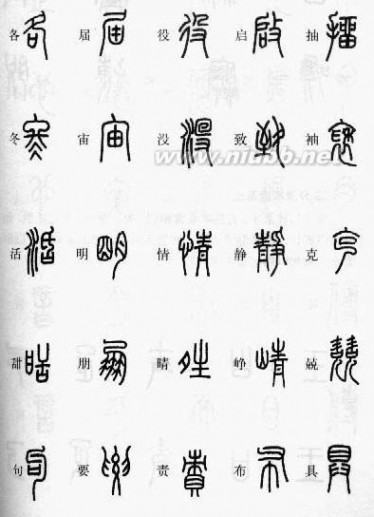 各 届 役 启 抽
冬 宙 没 致 袖
www.niubb.net
活 明 情 静 克
甜 朋 晴 峥 兢
句 要 责 布 具